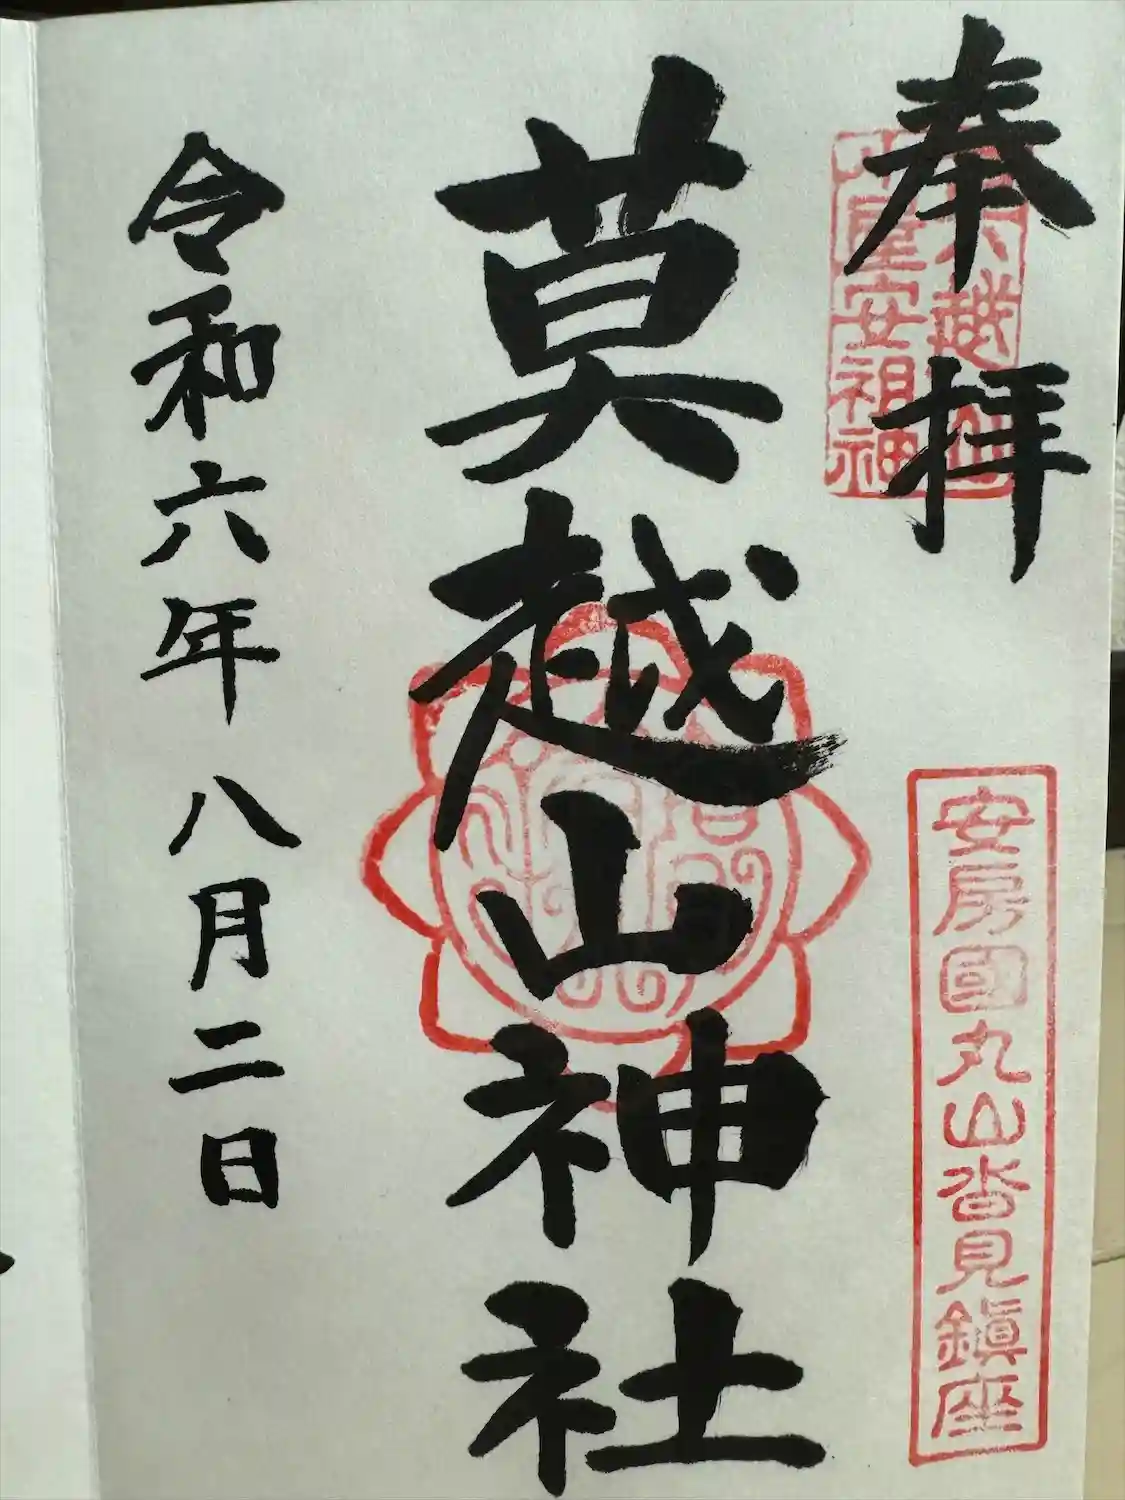 奉拝
小屋安祖神
莫越山神社
安房國丸山沓見鎮座
令和六年八月二日